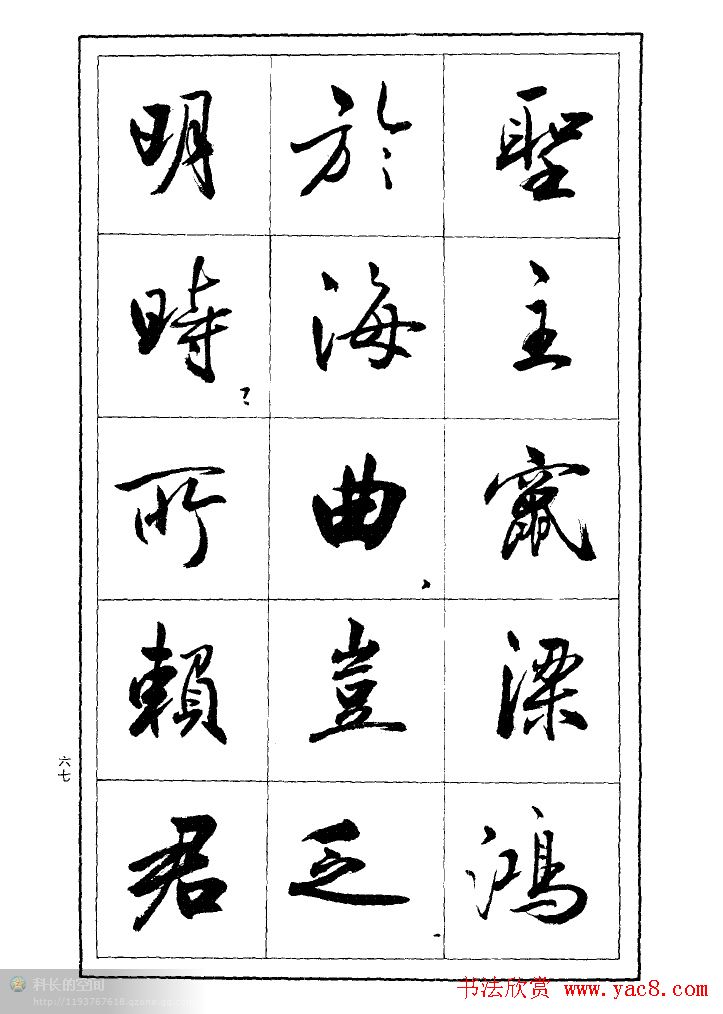 聖主竄梁鴻
於海曲豈乏
明時所賴君
六七
科长的空间
http://1193767618.qzone.qq.com
书法欣赏 www.yac8.com